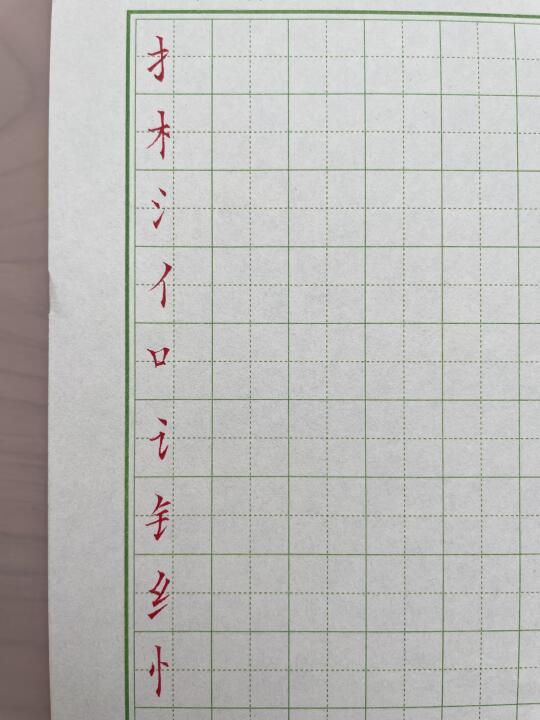 扌
木
氵
亻
口
讠
钅
纟
忄